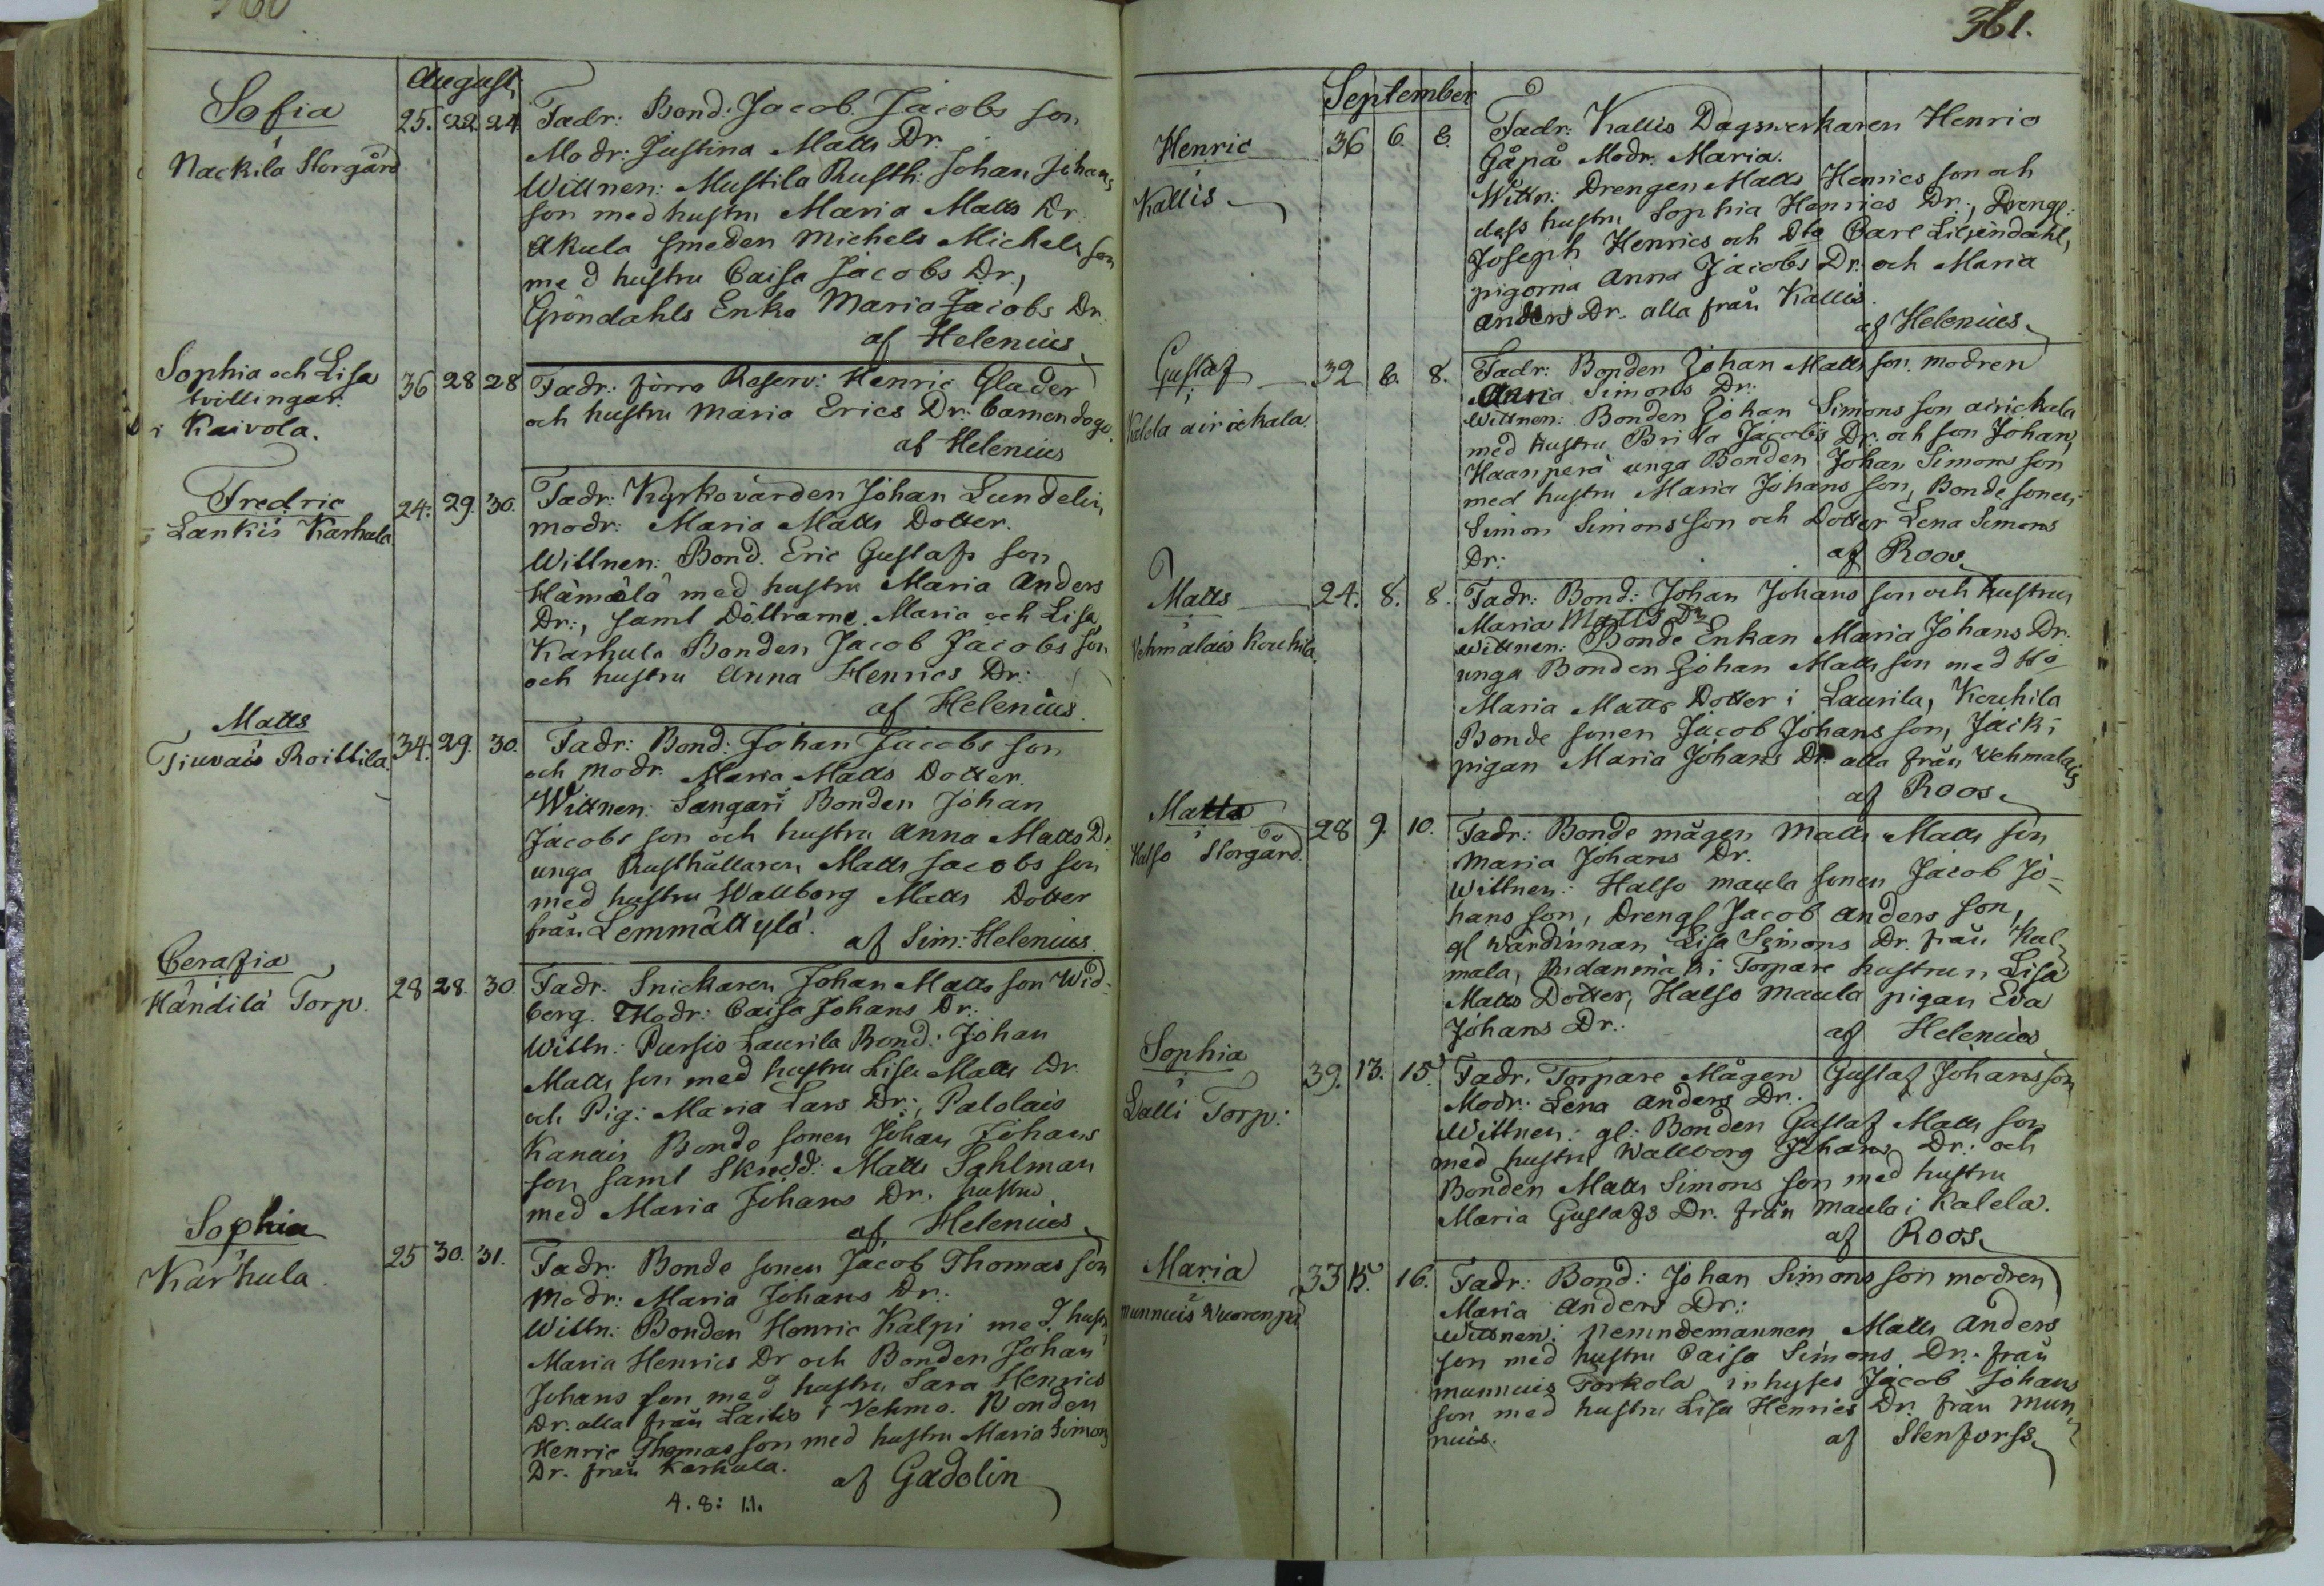 360
August
Sofia
i
Nackila Storgård
25. 22. 24
Fadr: Bond: Jacob Jacobs son
Modr: Justina Matts Dr.
Wittnen: Mustila Rusth: Johan Johans
son med hustru Maria Matts Dr.
Akula smeden Michels Michels son
med hustru Caisa Jacobs Dr,
Gröndahls Enka Maria Jacobs Dr.
af Helenius
Sophia och Lisa
tvillingar.
i Kaivola.
36 28 28
Fadr: förre Reserv: Henric Glader
och hustru Maria Erics Dr:
af Helenius
Fredric
Lankis Karhula
24. 29. 30.
Fadr: Kyrkovärden Johan Lundelin,
modr: Maria Matts Dotter.
Wittnen: Bond. Eric Gustafs son
Hämälä med hustru Maria Anders
Dr:, samt Döttrarne Maria och Lisa,
Karhula Bonden Jacob Jacobs son
och hustru Anna Henrics Dr:
af Helenius.
Matts
i
Tiuvais Roittila.
34. 29. 30.
Fadr: Bond: Johan Jacobs son
och modr. Maria Matts Dotter.
Wittnen: Sangari Bonden Johan
Jacobs son och hustru Anna Matts Dr.
unga Rusthållaren Matts Jacobs son
med hustru Wallborg Matts Dotter
från Lemmättylä.
af Sim: Helenius.
Cerafia
i
Händilä Torp.
28 28. 30.
Fadr. Snickaren Johan Matts son Wid-
berg. Modr: Caisa Johans Dr:
Wittn: Pursis Laurila Bond: Johan
Matts son med hustru Lisa Matts Dr.
och Pig: Maria Lars Dr:, Palolais
Kanais Bonde sonen Johan Johans
son samt Skrädd: Matts Sahlman
med Maria Johans Dr. hustru
af Helenius
Sophia
i
Karhula.
25 30. 31.
Fadr: Bonde sonen Jacob Thomas son
Modr: Maria Johans Dr.
Wittn: Bonden Henric Kalpi med hust:
Maria Henrics Dr och Bonden Johan
Johans son med hustru Sara Henrics
Dr. alla från Laitis i Vehmo. Bonden
Henric Thomas son med hustru Maria Simons
Dr. från Karhula.
af Gadolin
4. 8: 11.
361.
September
Henric
i
Kallis
36 6. 8.
Fadr: Kallis Dagsverkaren Henric
Gåpå Modr. Maria.
Wittn: Drengen Matts Henrics son och
dess hustru Sophia Henrics Dr:, Drengl:
Joseph Henrics och Dto Carl Liljendahl,
pigorna Anna Jacobs Dr: och Maria
Anders Dr. alla från Kallis.
af Helenius.
Gustaf
i
Kalela airickala.
32 6. 8.
Fadr: Bonden Johan Matts son. modren
Anna Simons Dr:
Wittnen: Bonden Johan Simons son airickala
med hustru Brita Jacobs Dr: och son Johan,
Haanperä unga Bonden Johan Simons son
med hustru Maria Johans son, Bonde sonen
Simon Simons son och Dotter Lena Simons
Dr:
af Roos
Matts
i
Vehmalais Kouhila
24. 8. 8.
Fadr: Bond: Johan Johans son och hustru
Maria Matts Dr.
Wittnen: Bonde Enkan Maria Johans Dr.
unga Bonden Johan Matts son med H:o
Maria Matts Dotter i Laurila, Kouhila
Bonde sonen Jacob Johans son, Jäck:
pigan Maria Johans Dr alla från Vehmalais
af Roos.
Matts
i
Halso Storgård.
28 9. 10.
Fadr: Bonde mågen Matts Matts son
Maria Johans Dr.
Wittnen: Halso maula sonen Jacob Jo-
hans son, Drengl Jacob Anders son,
gl wärdinnan Lisa Simons Dr. från Kal-
mala, Ridanmäki Torpare hustrun Lisa
Matts Dotter, Halso maula pigan Eva
Johans Dr:
af Helenius
Sophia
i
Lalli Torp:
39. 13. 15.
Fadr. Torpare Mågen Gustaf Johans son
Modr: Lena Anders Dr:
Wittnen: gl: Bonden Gustaf Matts son
med hustru Wallborg Johans Dr: och
Bonden Matts Simons son med hustru
Maria Gustafs Dr. från Maula i Kalela.
af Roos.
Maria
i
Munnuis Vuorenpä
33 15. 16.
Fadr: Bond: Johan Simons son modren
Maria Anders Dr:
Wittnen: Nemndemannen Matts Anders
son med hustru Caisa Simons Dr. från
munnuis Torkola inhyses Jacob Johans
son med hustru Lisa Henrics Dr. från Mun-
nuis.
af Stenforss